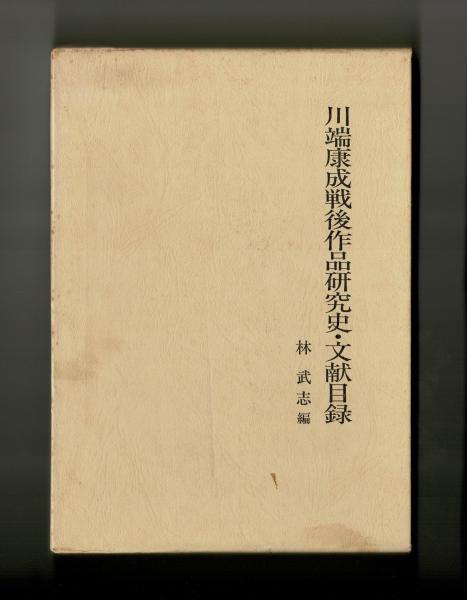 川端康成戦後作品研究史・文献目録
林武志編